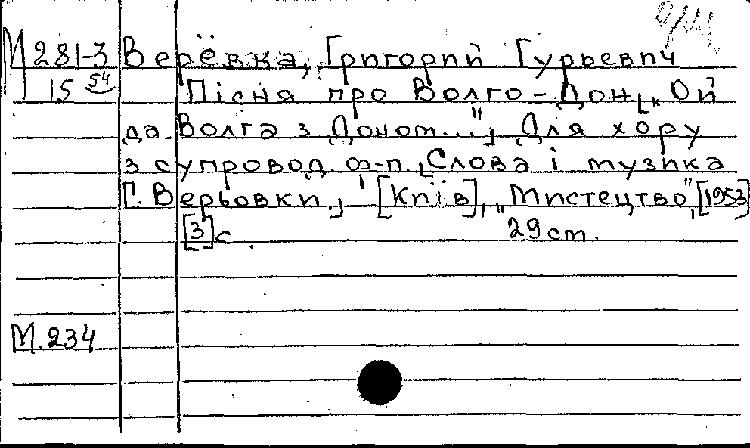 М 281-3 Верёвка, Григорий Гурьевич
15 54 Пісня про Волго-Дон [„Ой
да Волга з Доном..."] Для хору
з супровод. ф-п. [Слова і музика
Г. Верьовки.] [Київ], „Мистецтво", [1953]
[3] с. 29 ст.
М.234